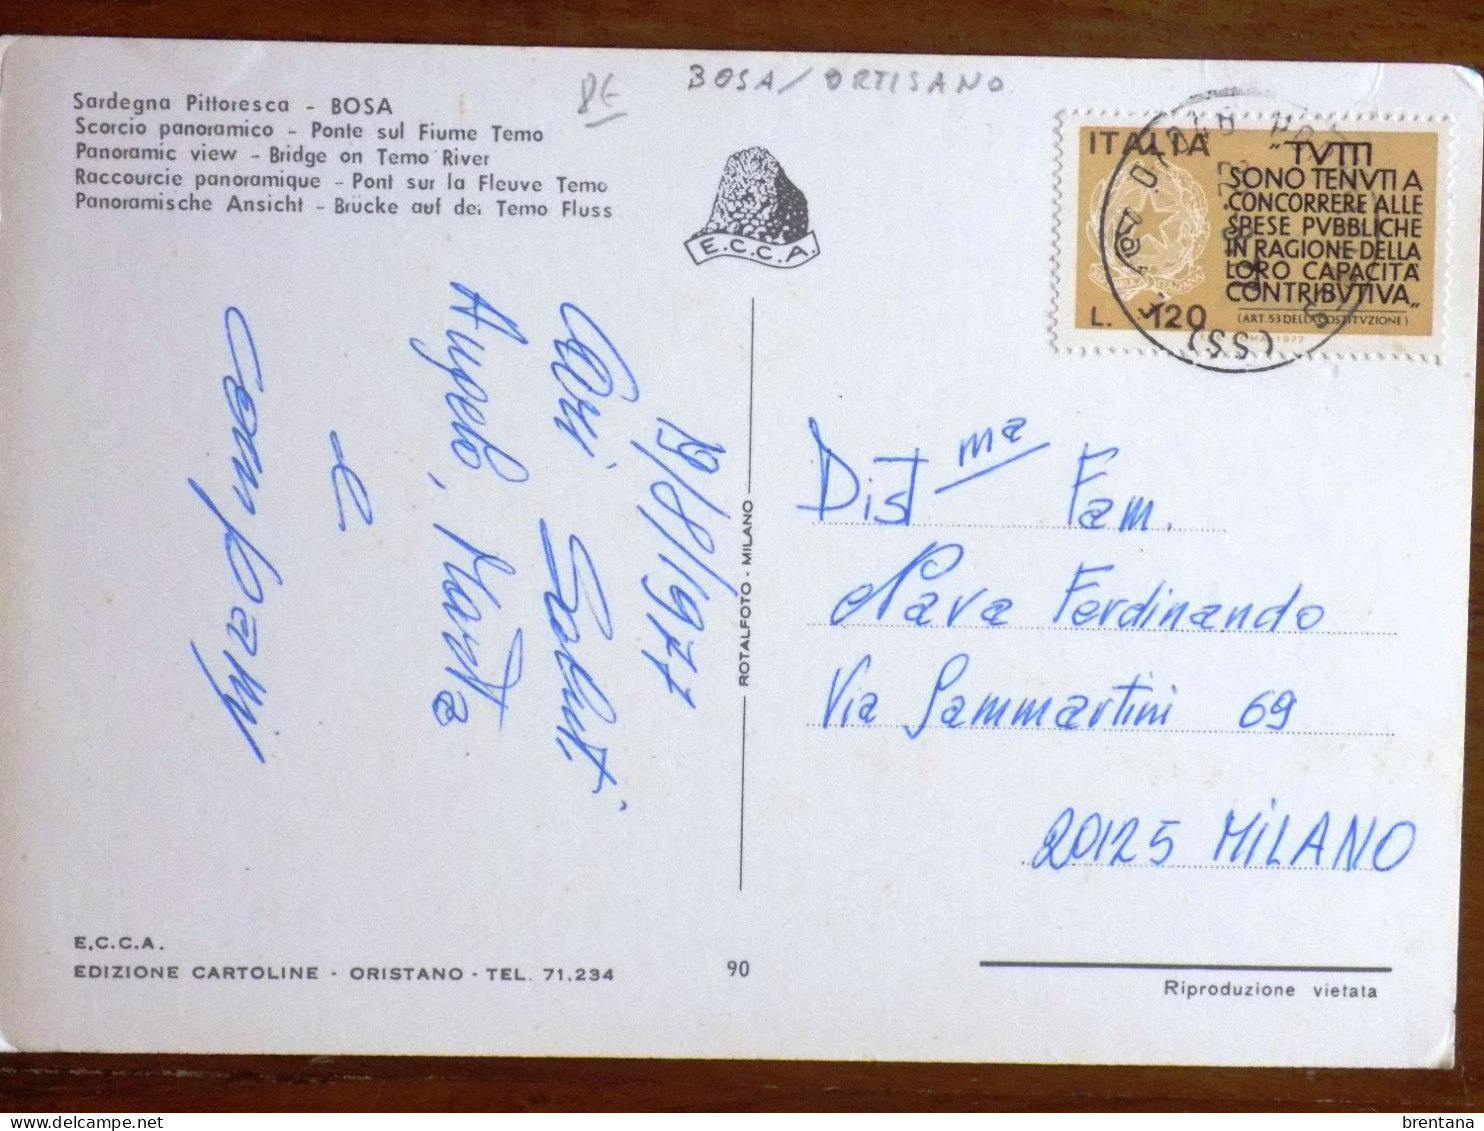 8€
BOSA/ORTISANO
Sardegna Pittoresca - BOSA
Scorcio panoramico - Ponte sul Fiume Temo
Panoramic view - Bridge on Temo River
Raccourcie panoramique - Pont sur la Fleuve Temo
Panoramische Ansicht - Brücke auf dei Temo Fluss
E.C.C.A.
ITALIA
"TVTTI
SONO TENVTI A
CONCORRERE ALLE
SPESE PVBBLICHE
IN RAGIONE DELLA
LORO CAPACITÀ
CONTRIBVTIVA"
(ART. 53 DELLA COSTITVZIONE)
L. 120
(SS)
19/8/1977
Cari Saluti
Angelo, Marta
e
company
ROTALFOTO - MILANO
Dist ma Fam.
Nava Ferdinando
Via Sammartini 69
20125 MILANO
E.C.C.A.
EDIZIONE CARTOLINE - ORISTANO - TEL. 71.234
90
Riproduzione vietata
brentana